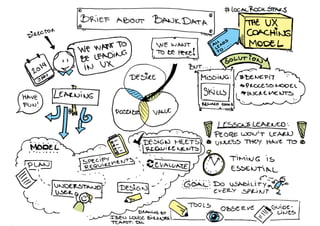 BRIEF ABOUT BANKDATA
#LOCALROCKSTARS
THE UX
COACHING
MODEL
DIRECTOR
WE WANT TO
BE LEADING
IN UX
WE WANT
TO BE HERE!
BUT...
SOLUTION
2014
MISSING:
SKILLS
#BENEFIT
#PROCESS MODEL
#INCREMENTS
DESIRE
VALUE
HAVE
FUN!
LEARNING
LESSONS LEARNED:
PEOPLE WON'T LEARN
UNLESS THEY HAVE TO
MODEL
PLAN
SPECIFY
REQUIREMENTS
DESIGN MEETS
REQUIREMENTS
EVALUATE
UNDERSTAND
USER
DESIGN
TIMING IS
ESSENTIAL
GOAL: DO USABILITY
EVERY SPRINT
TOOLS
OBSERVE
GUIDE-
LINES